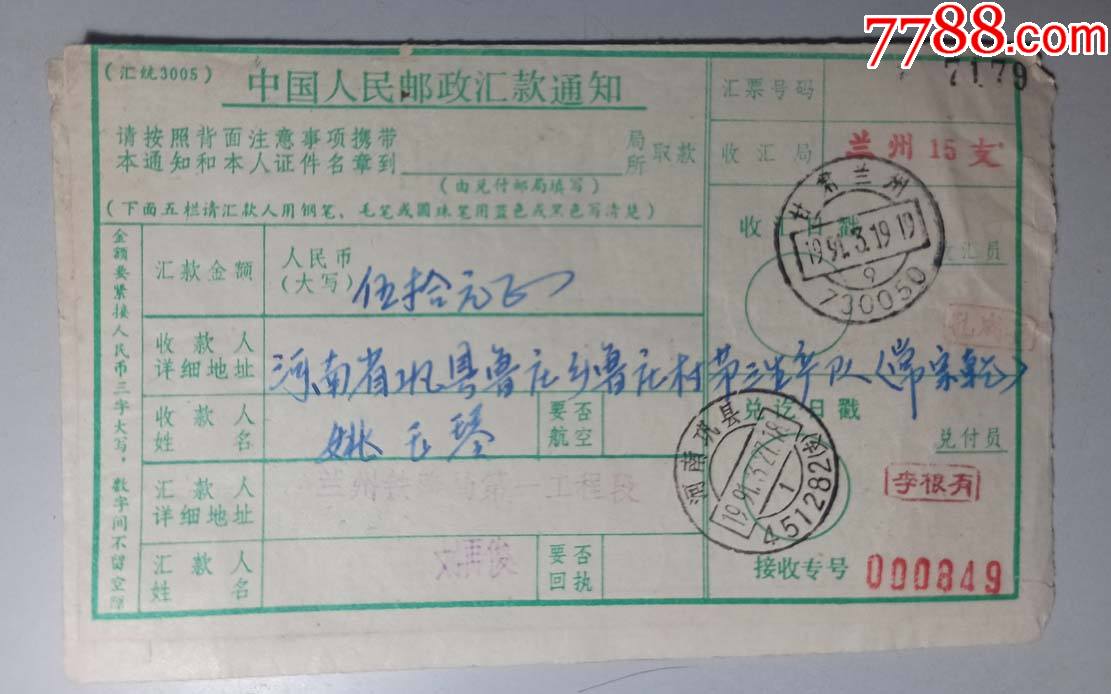 7788.com
(汇统3005)
中国人民邮政汇款通知
汇票号码
7179
请按照背面注意事项携带
本通知和本人证件名章到
局
所
取款
(由兑付邮局填写)
收汇局
兰州15支
(下面五栏请汇款人用钢笔、毛笔或圆珠笔用蓝色或黑色写清楚)
金额要紧接人民币三字大写,数字间不留空隙
汇款金额
人民币
(大写)
伍拾元正
收汇日戳
收汇员
甘肃兰州
1991.3.19 19
9
730050
收款人
详细地址
河南省巩县鲁庄乡鲁庄村第三生产队
收款人
姓名
姚玉琴
要否
航空
兑讫日戳
兑付员
河南巩县
1991.3.27.18
1
451282
李根有
汇款人
详细地址
兰州铁
工程段
汇款人
姓名
俊
要否
回执
接收专号
000849